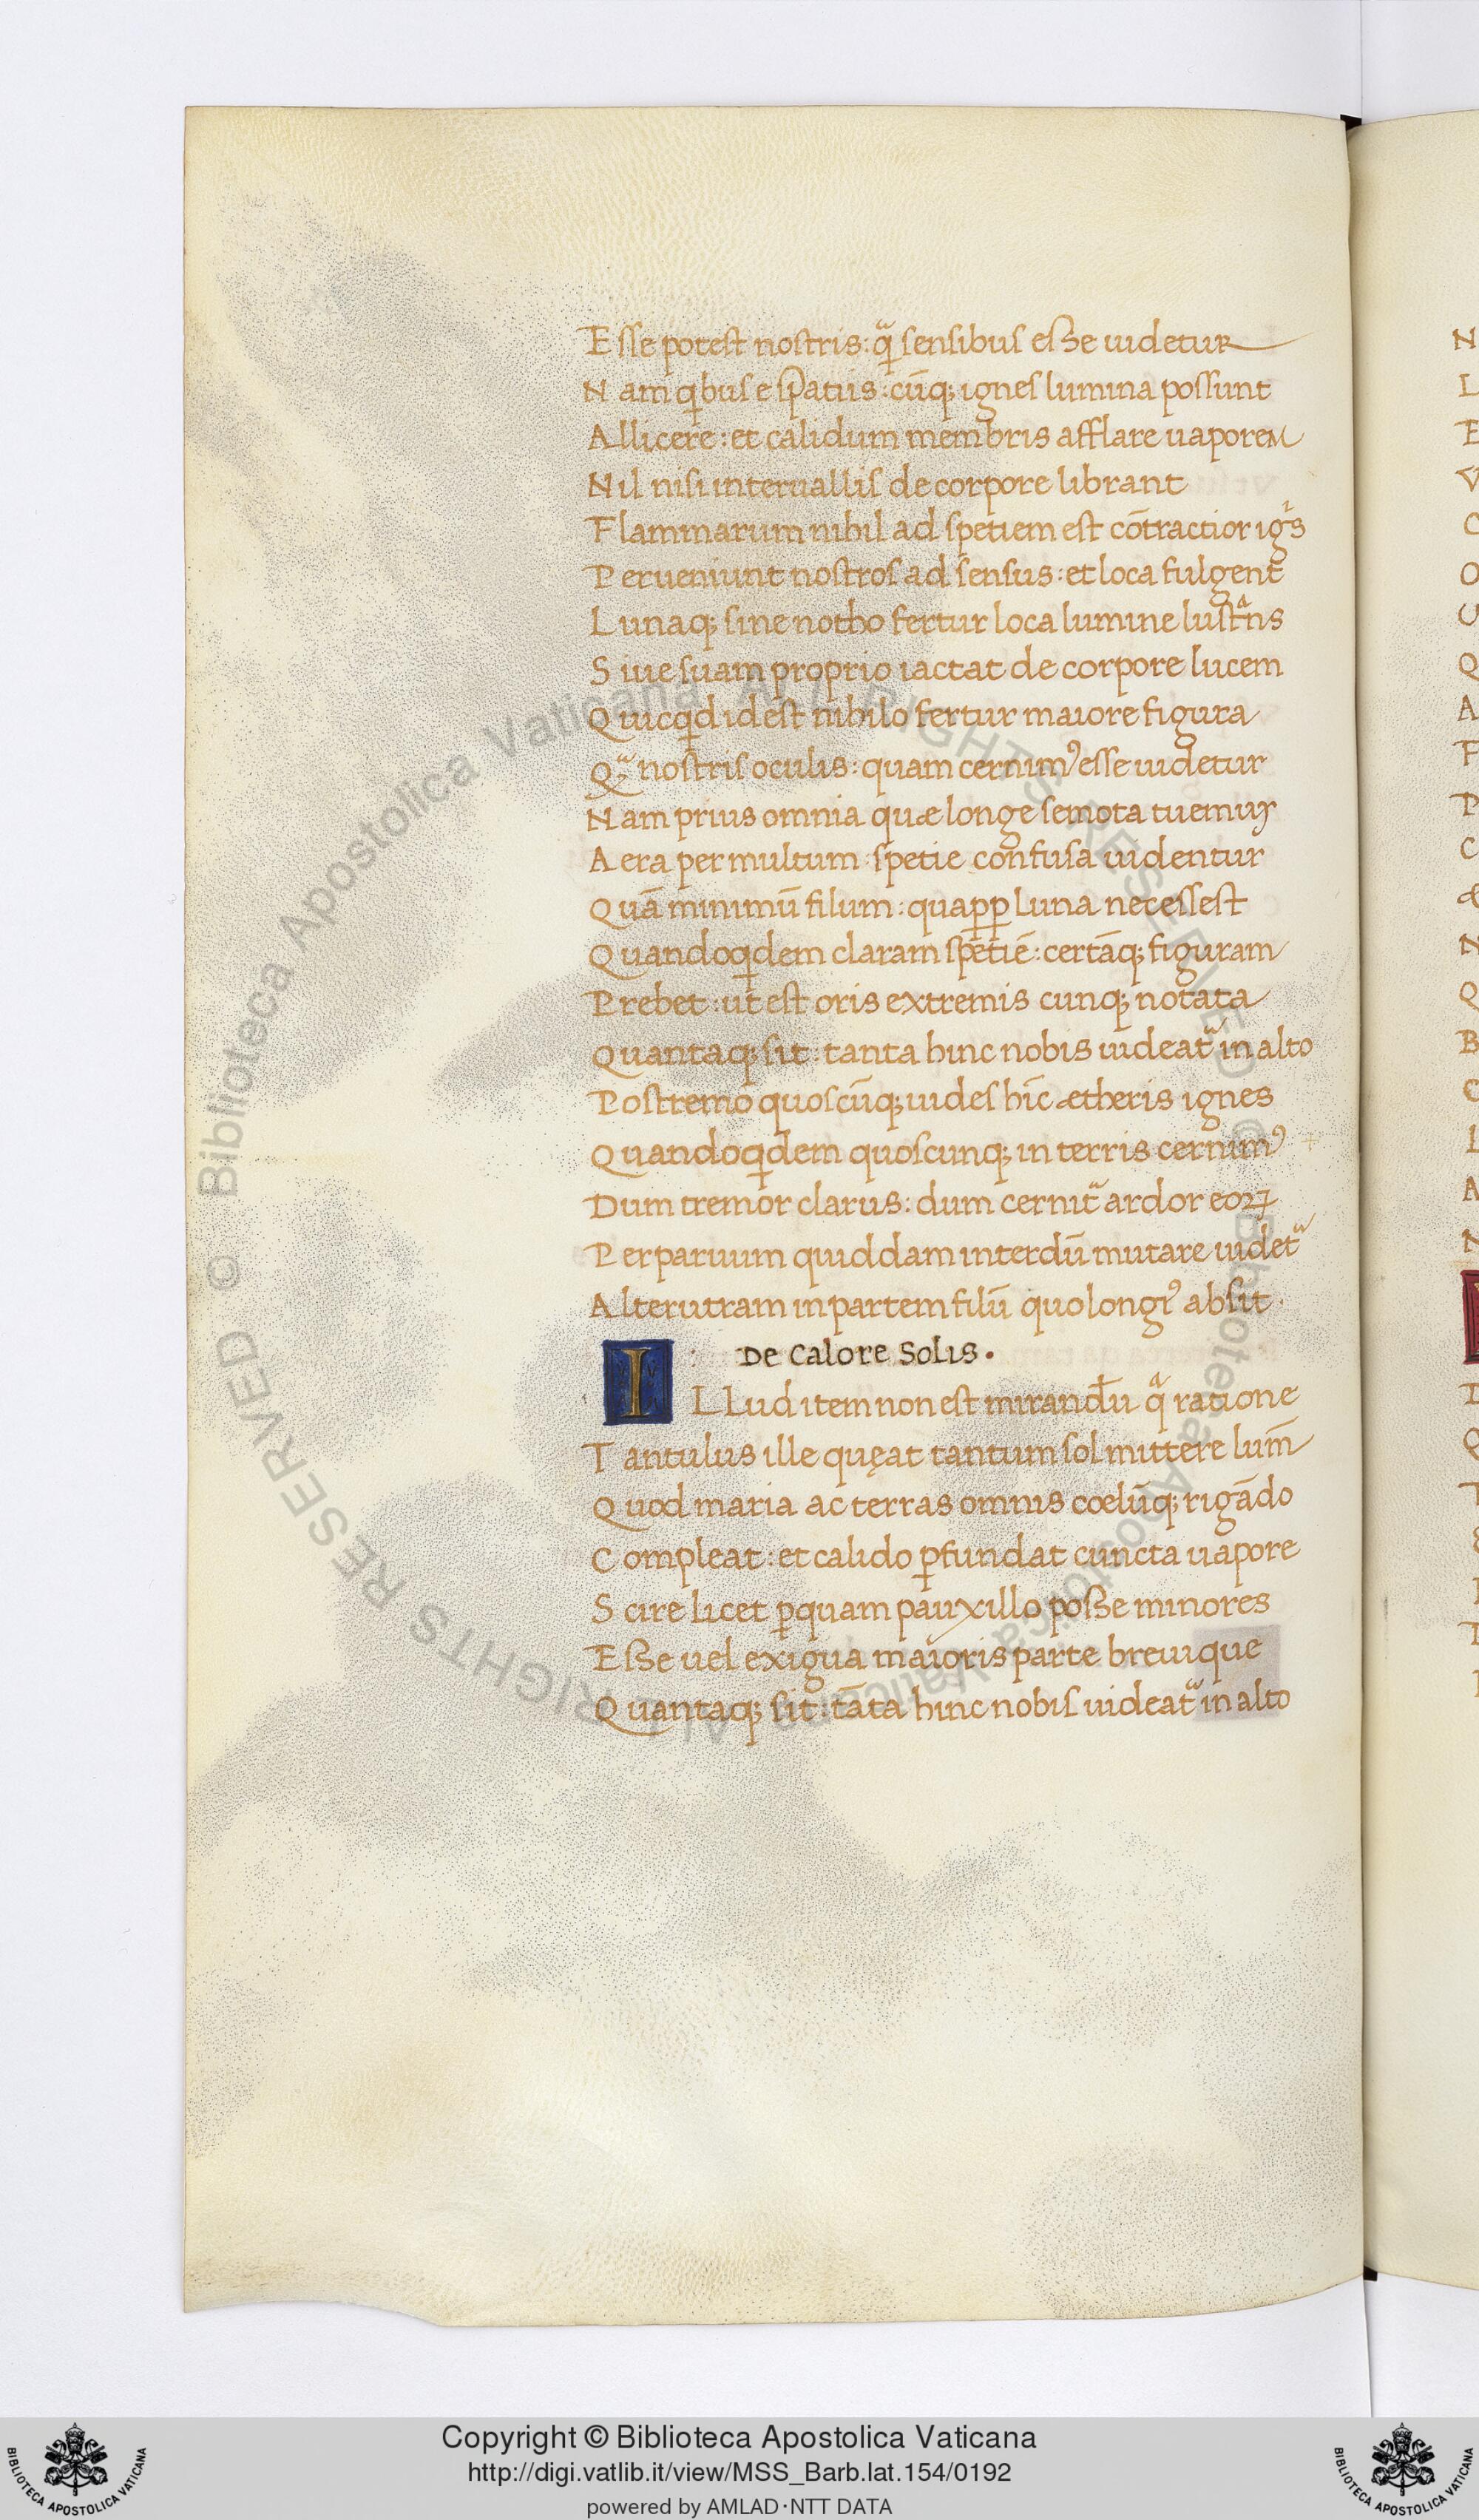 Esse potest nostris: qᷓ sensibus esse uidetur
Nam qͥbus e spatiis: cūqꝫ ignes lumina possunt
Allicere: et calidum membris afflare uaporem
Nil nisi interuallis de corpore librant
Flammarum nihil ad spetiem est cōtractior igͥs
Perueniunt nostros ad sensus: et loca fulgent
Lunaqꝫ sine notho fertur loca lumine lustᷓns
Siue suam proprio iactat de corpore lucem
Quicqͥd id est nihilo fertur maiore figura
Qᷓ nostris oculis: quam cernimꝰ esse uidetur
Nam prius omnia quæ longe semota tuemur
Aera per multum: spetie confusa uidentur
Quā minimū filum: quaꝓꝑ luna necessest
Quandoqͥdem claram spetiē: certāqꝫ figuram
Prebet: ut est oris extremis cunqꝫ notata
Quantaqꝫ sit: tanta hinc nobis uideatᷣ in alto
Postremo quoscūqꝫ uides hīc ætheris ignes
Quandoqͥdem quoscunqꝫ in terris cernimꝰ
Dum tremor clarus: dum cernitᷣ ardor eoꝝ
Perparuum quiddam interdū mutare uidetᷣ
Alterutram in partem filū quo longiꝰ absit.
De Calore Solis.
ILLud item non est mirandū qᷓ ratione
Tantulus ille quęat tantum sol mittere lum̄
Quod maria ac terras omnis cœlūqꝫ rigādo
Compleat: et calido ꝑfundat cuncta uapore
Scire licet ꝑquam pauxillo posse minores
Esse uel exigua maioris parte breuique
Quantaqꝫ sit: tāta hinc nobis uideatᷣ in alto
© Biblioteca Apostolica Vaticana ALL RIGHTS RESERVED © Biblioteca Apostolica Vaticana ALL RIGHTS RESERVED
Copyright © Biblioteca Apostolica Vaticana
http://digi.vatlib.it/view/MSS_Barb.lat.154/0192
powered by AMLAD·NTT DATA
BIBLIOTECA APOSTOLICA VATICANA
BIBLIOTECA APOSTOLICA VATICANA